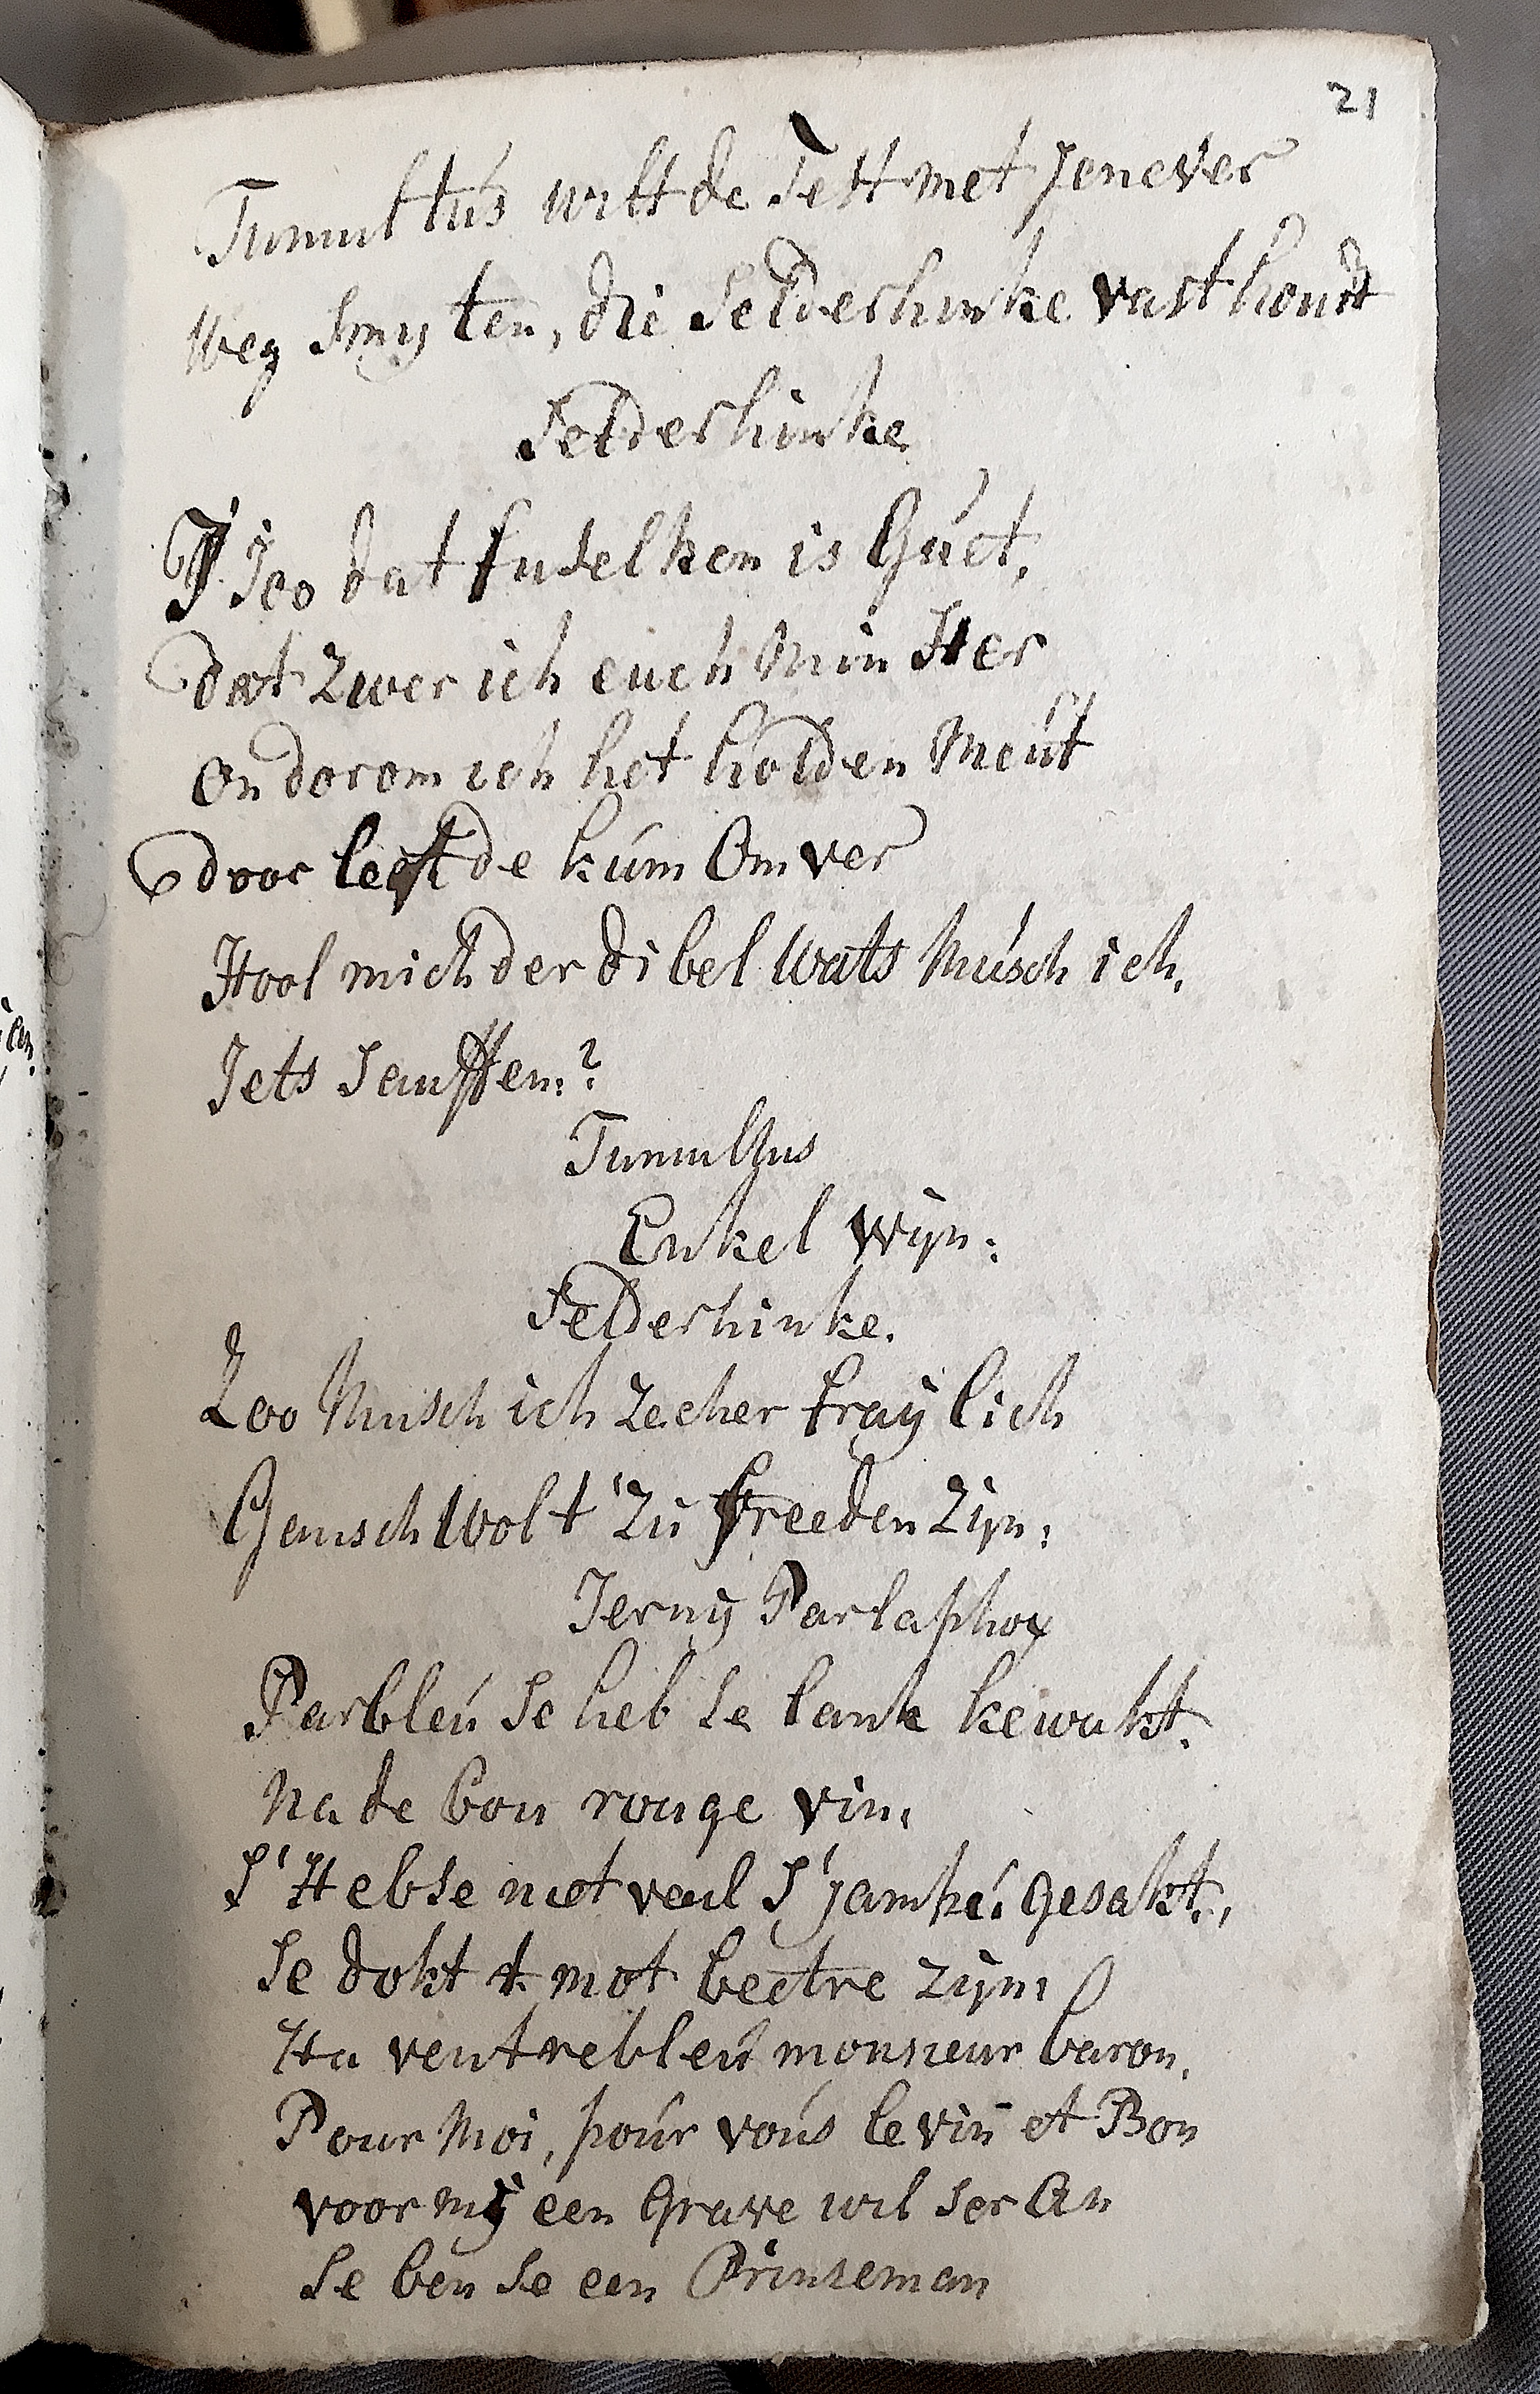 21
Tumultus wilt de Fett met Jenever
Weg Smyten, die Selderhinke vast houdt
Selderhinke
J Joo dat fuselken is Guet,
dat zwer ich euch Min Her
on dorom ich het holden Meut
door leefde kum Om ver
Hool mich der dibel Wats Musch ich,
Jets Sauffen:?
Tumultus
Enkel Wijn:
Selderhinke.
Zoo Musch ich zecher fraylich
Gansch Wolt Zu freeden Zijn:
Jerny Parlaphox
Parbleu Se heb Se lank kewakt.
Na de bon rouge vin,
S' Hebse niet veul S'jamke: gesakt,
Se dokt t mot beetre zijn
Ha ventrebleu monsieur baron,
Pour Moi, pour vous le vin et Bon
voor mij een Grave wil ser An
Se ben Se een Prinseman